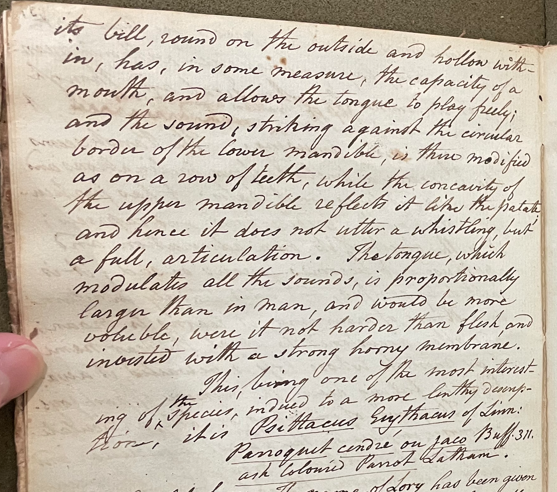 its bill, round on the outside and hollow with-
in, has, in some measure, the capacity of a
mouth, and allows the tongue to play freely;
and the sound, striking against the circular
border of the lower mandible, is there modified
as on a row of teeth, while the concavity of
the upper mandible reflects it like the palate,
and hence it does not utter a whistling, but
a full, articulation. The tongue, which
modulates all the sounds, is proportionally
larger than in man, and would be more
voluble, were it not harder than flesh, and
invested with a strong horny membrane.
This, being one of the most interest-
ing of the species, induced to a more lenthy descrip-
tion, it is Psittacus Erythacus of Linn:
Parroquet cendre ou jaco Buff. 311.
ash Coloured Parrot Latham.
name of Lory has been given